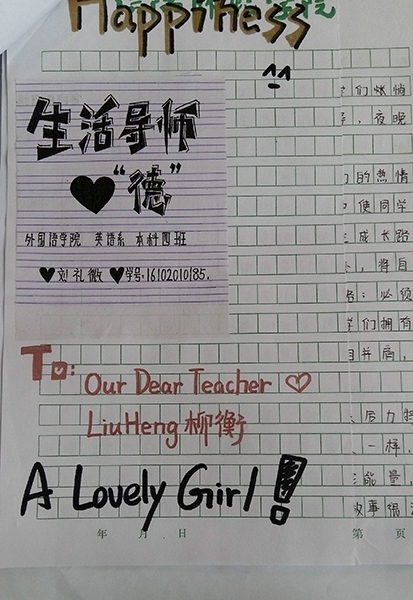 Happiness
生活导师
“德”
外国语学院 英语系 本科四班
刘礼微 学号:16102010185.
To:
Our Dear Teacher
LiuHeng 柳衡
A Lovely Girl!
们
，夜晚
的热情
使同学
成长路
，将自
：必须
学们拥有
自并肩，
后力
一样，
能量，
故事
年 月 日
第 页